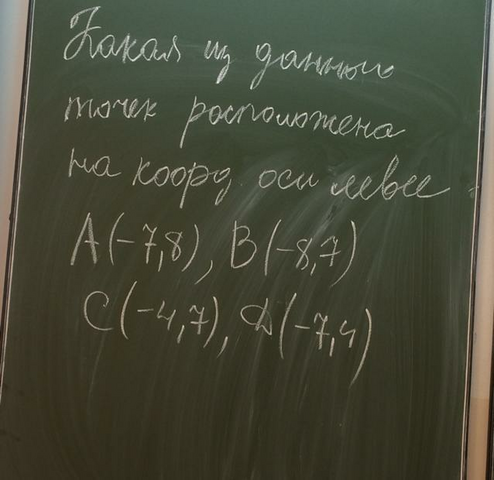 Какая из данных
точек расположена
на коорд оси левее
A(-7,8), B(-8,7)
C(-4,7), D(-7,4)